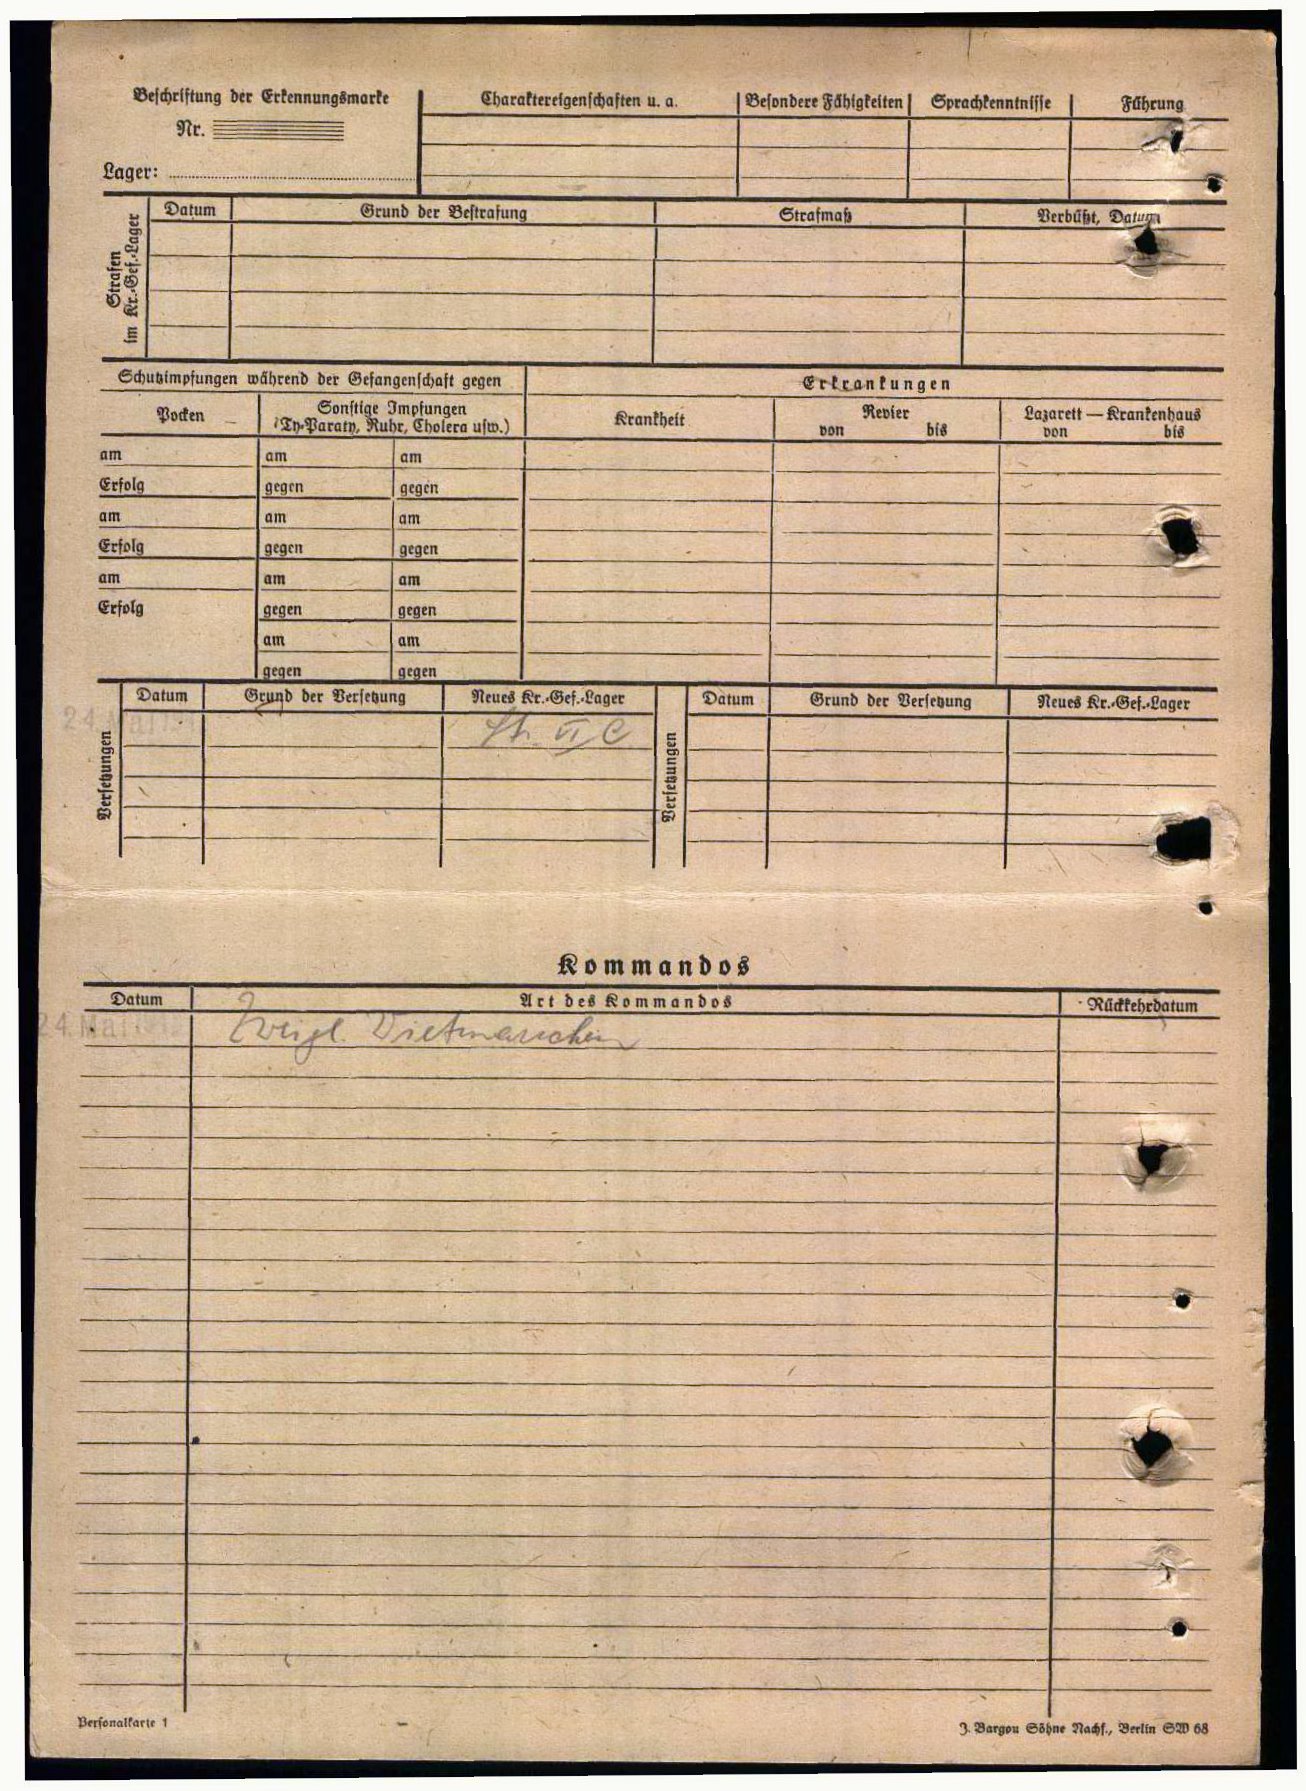 Beschriftung der Erkennungsmarke
Nr.
Lager:
Charaktereigenschaften u. a.
Besondere Fähigkeiten
Sprachkenntnisse
Führung
Strafen im Kr.-Gef.-Lager
Datum
Grund der Bestrafung
Strafmaß
Verbüßt, Datum
Schutzimpfungen während der Gefangenschaft gegen
Erkrankungen
Pocken
Sonstige Impfungen
(Ty-Paraty, Ruhr, Cholera usw.)
Krankheit
Revier
von bis
Lazarett — Krankenhaus
von bis
am am am
Erfolg gegen gegen
am am am
Erfolg gegen gegen
am am am
Erfolg gegen gegen
am am
gegen gegen
Versetzungen
Datum
Grund der Versetzung
Neues Kr.-Gef.-Lager
24. Mai
St. VI C
Versetzungen
Datum
Grund der Versetzung
Neues Kr.-Gef.-Lager
Kommandos
Datum
Art des Kommandos
Rückkehrdatum
24. Mai
Zweigl. Wietmarschen
Personalkarte 1
J. Bargou Söhne Nachf., Berlin SW 68